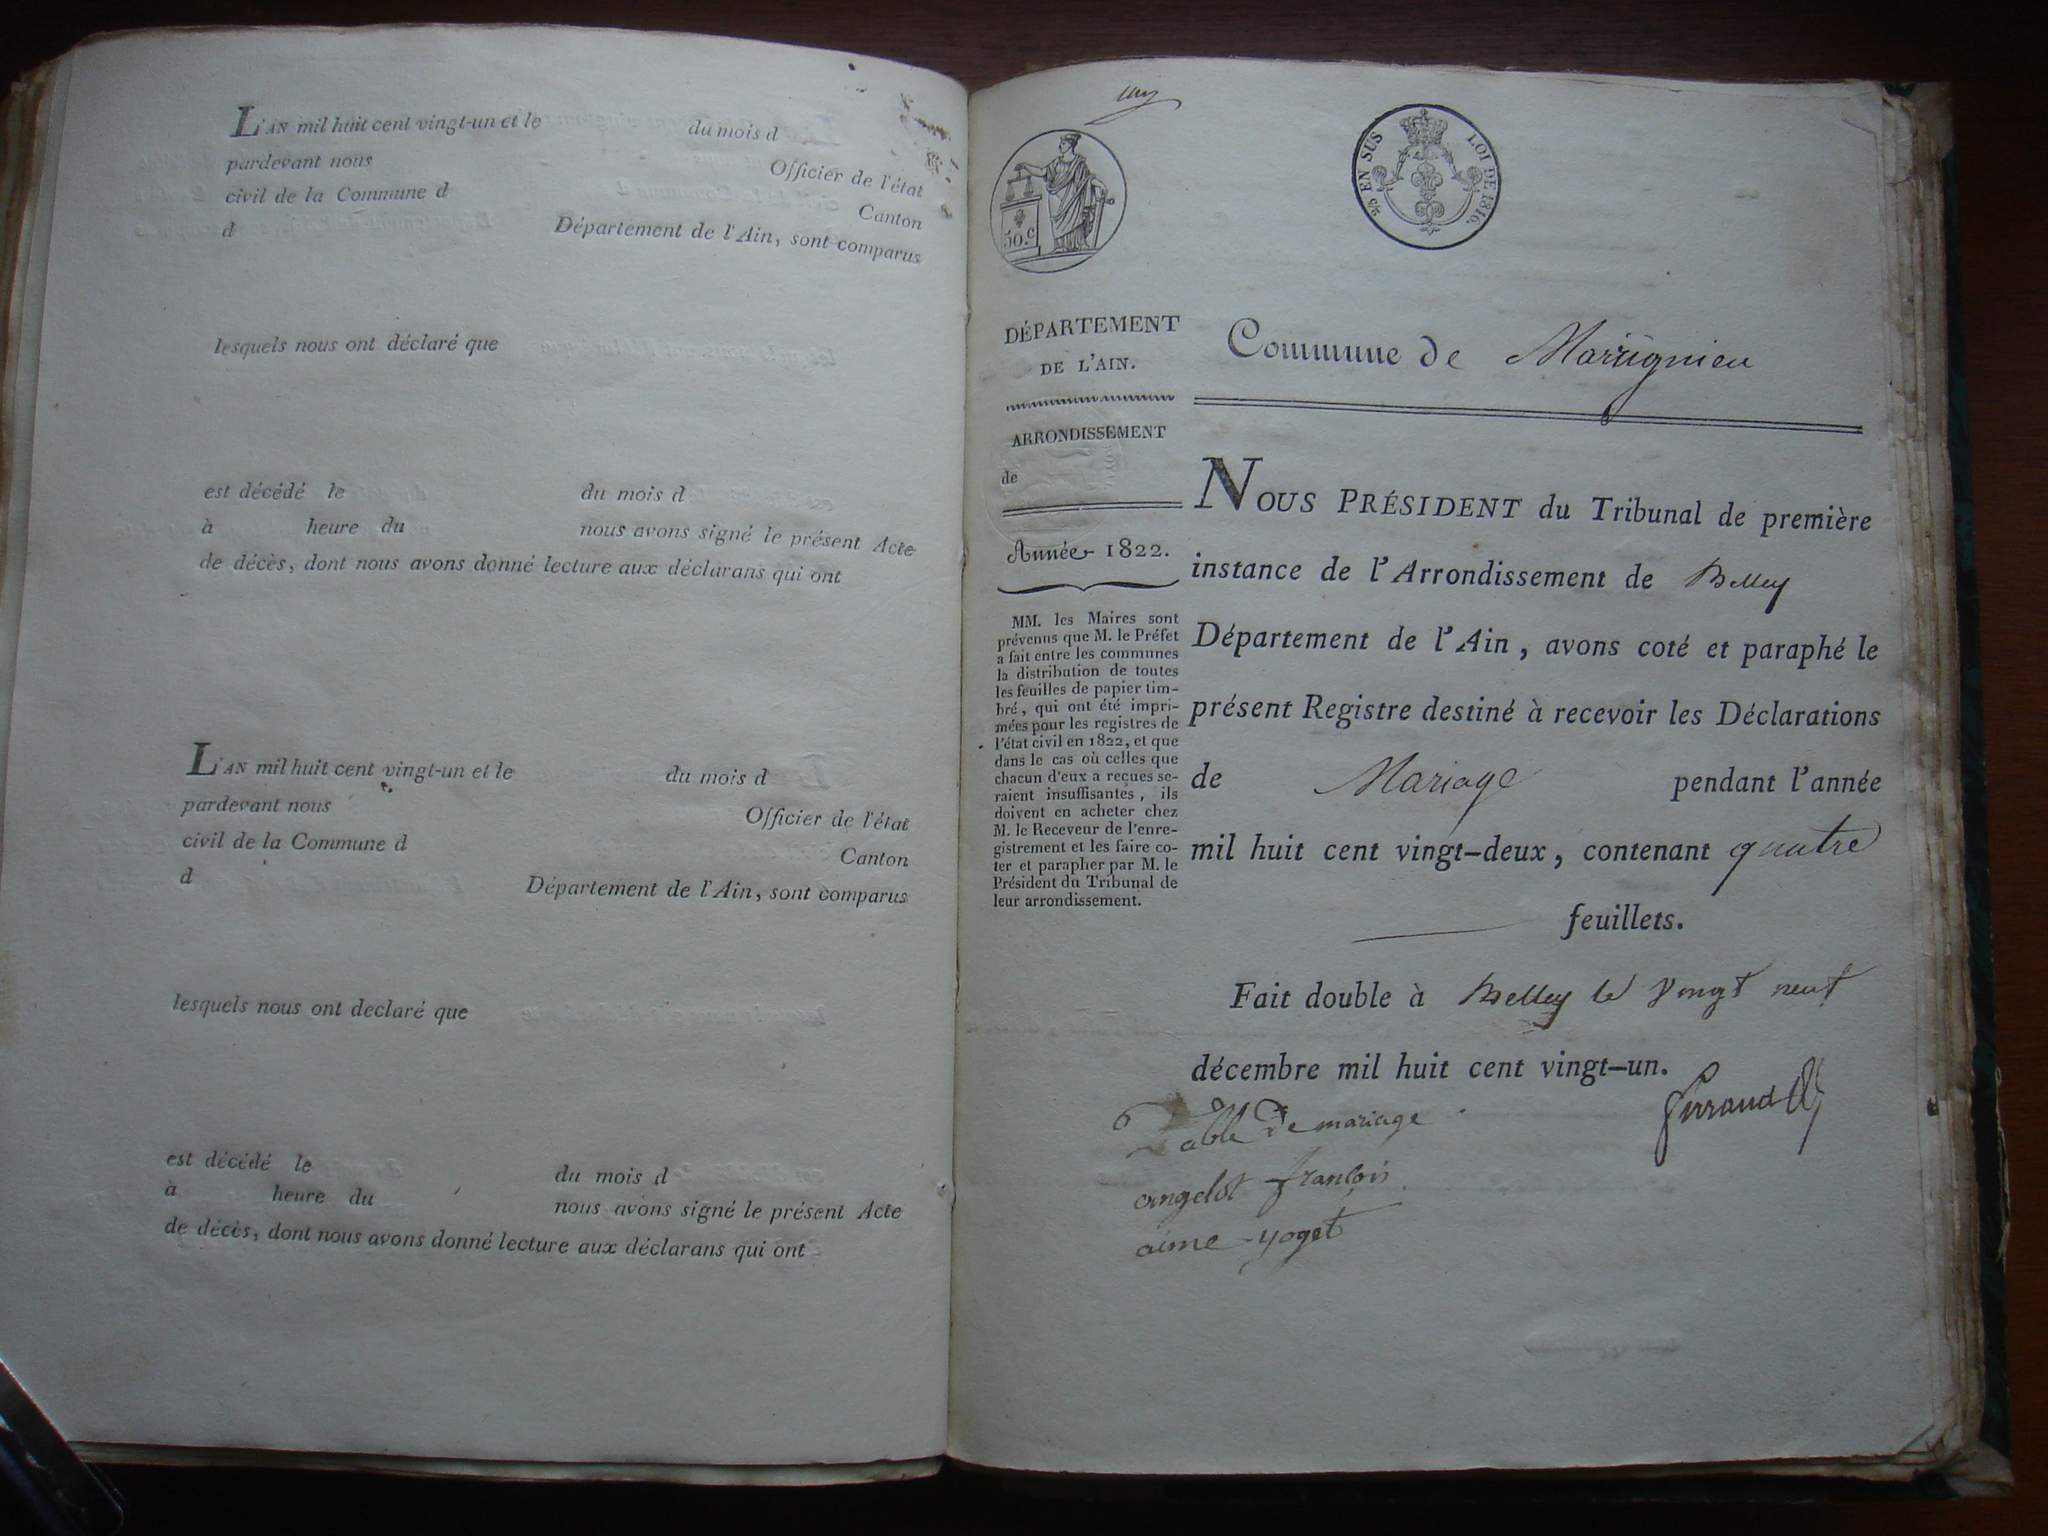 L'AN mil huit cent vingt-un et le du mois d
pardevant nous Officier de l'état
civil de la Commune d Canton
d Département de l'Ain, sont comparus
lesquels nous ont déclaré que
est décédé le du mois d
à heure du nous avons signé le présent Acte
de décès, dont nous avons donné lecture aux déclarans qui ont
L'AN mil huit cent vingt-un et le du mois d
pardevant nous Officier de l'état
civil de la Commune d Canton
d Département de l'Ain, sont comparus
lesquels nous ont declaré que
est décédé le du mois d
à heure du nous avons signé le présent Acte
de décès, dont nous avons donné lecture aux déclarans qui ont
50.c
EN SUS LOI DE 1816.
DÉPARTEMENT
DE L'AIN.
ARRONDISSEMENT
de
Année 1822.
MM. les Maires sont
prévenus que M. le Préfet
a fait entre les communes
la distribution de toutes
les feuilles de papier tim-
bré, qui ont été impri-
mées pour les registres de
l'état civil en 1822, et que
dans le cas où celles que
chacun d'eux a reçues se-
raient insuffisantes, ils
doivent en acheter chez
M. le Receveur de l'enre-
gistrement et les faire co-
ter et parapher par M. le
Président du Tribunal de
leur arrondissement.
Commune de Marignieu
NOUS PRÉSIDENT du Tribunal de première
instance de l'Arrondissement de Belley
Département de l'Ain, avons coté et paraphé le
présent Registre destiné à recevoir les Déclarations
de Mariage pendant l'année
mil huit cent vingt-deux, contenant quatre
feuillets.
Fait double à Belley le vingt neuf
décembre mil huit cent vingt-un.
Table De mariage
angelot françois
aime yoget